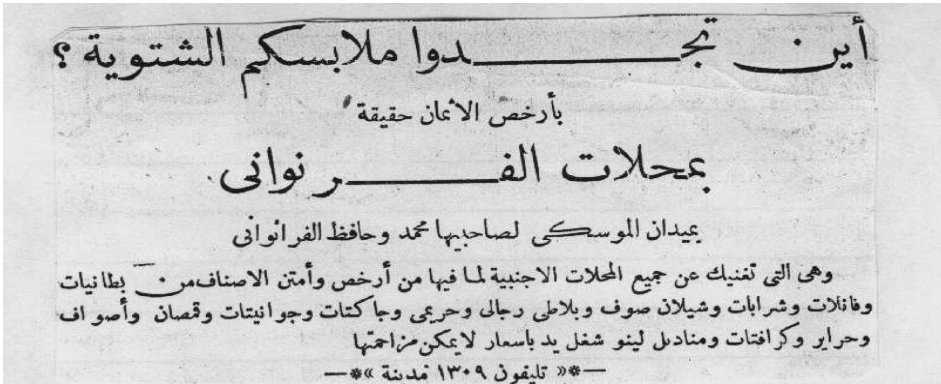 أين تجدوا ملابسكم الشتوية ؟
بأرخص الأثمان حقيقة
بمحلات الفرنوانى
بميدان الموسكى لصاحبيها محمد وحافظ الفرانوانى
وهى التى تغنيك عن جميع المحلات الاجنبية لما فيها من أرخص وأمتن الاصناف من بطانيات
وفانلات وشرابات وشيلان صوف وبلاطى رجالى وحريمى وجاكتات وجوانيتات وقمصان وأصواف
وحراير وكرافتات ومناديل لينو شغل يد بأسعار لايمكن مزاحمتها
—*« تليفون ١٣٠٩ مدينة »*—